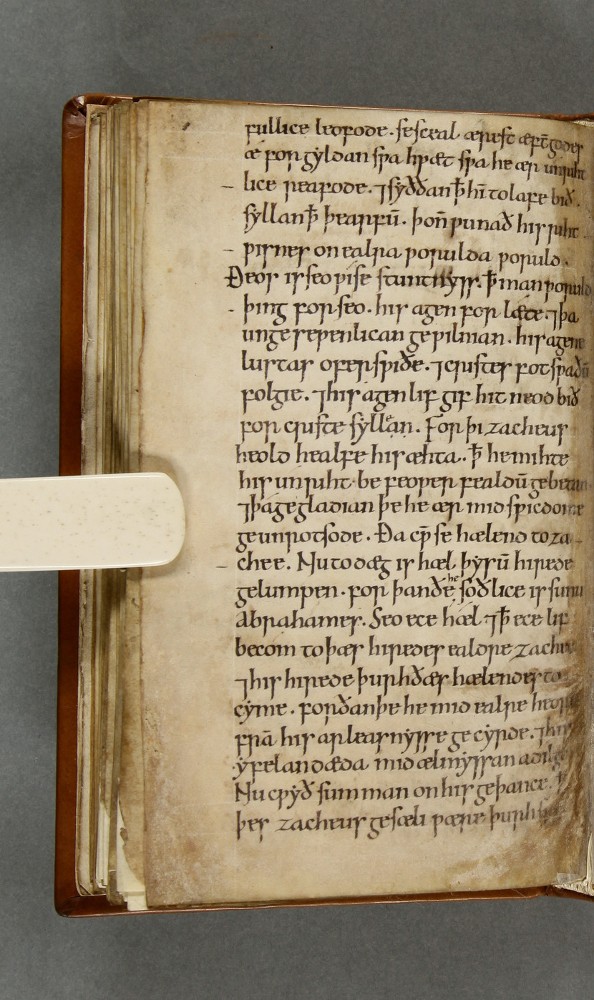 fullice leofode. se sceal ærest æft̄ godes
æ forgyldan swa hwæt swa he ær unriht
lice reafode. ⁊ syððan ꝥ hī to lafe bið.
syllan ꝥ þearfū. þoñ wunað his riht
wisnes on ealra worulda woruld.
Ðeos is seo wise stuntnyss. ꝥ man woruld
þing forseo. his agen forlæte. ⁊ þa
unge sewenlican gewilman. his agene
lustas oferswiðe. ⁊ cristes fotswaðū
folgie. ⁊ his agen lif gif hit neod bið
for criste syllan. For þi zacheus
heold healfe his æhta. ꝥ he mihte
his unriht. be feower fealdū gebetan
⁊ þa gegladian þe he ær mid swicdome
geunrotsode. Ða cw̄ se hælend to za
chee. Nu todæg is hæl þysū hirede
gelumpen. for þan ðe he soðlice is sunu
abrahames. Seo ece hæl ⁊ ꝥ ece lif
becom to þæs hiredes ealdre zachee
⁊ his hirede þurh ðæs hælendes to
cyme. forðan þe he mid ealre heortan
frā his arleasnysse gecyrde. ⁊ his
yfelan dæda mid ælmyssan adilgode
Nu cwyð sum man on his geþance. ꝥ
þes zacheus gesæli wære þurh